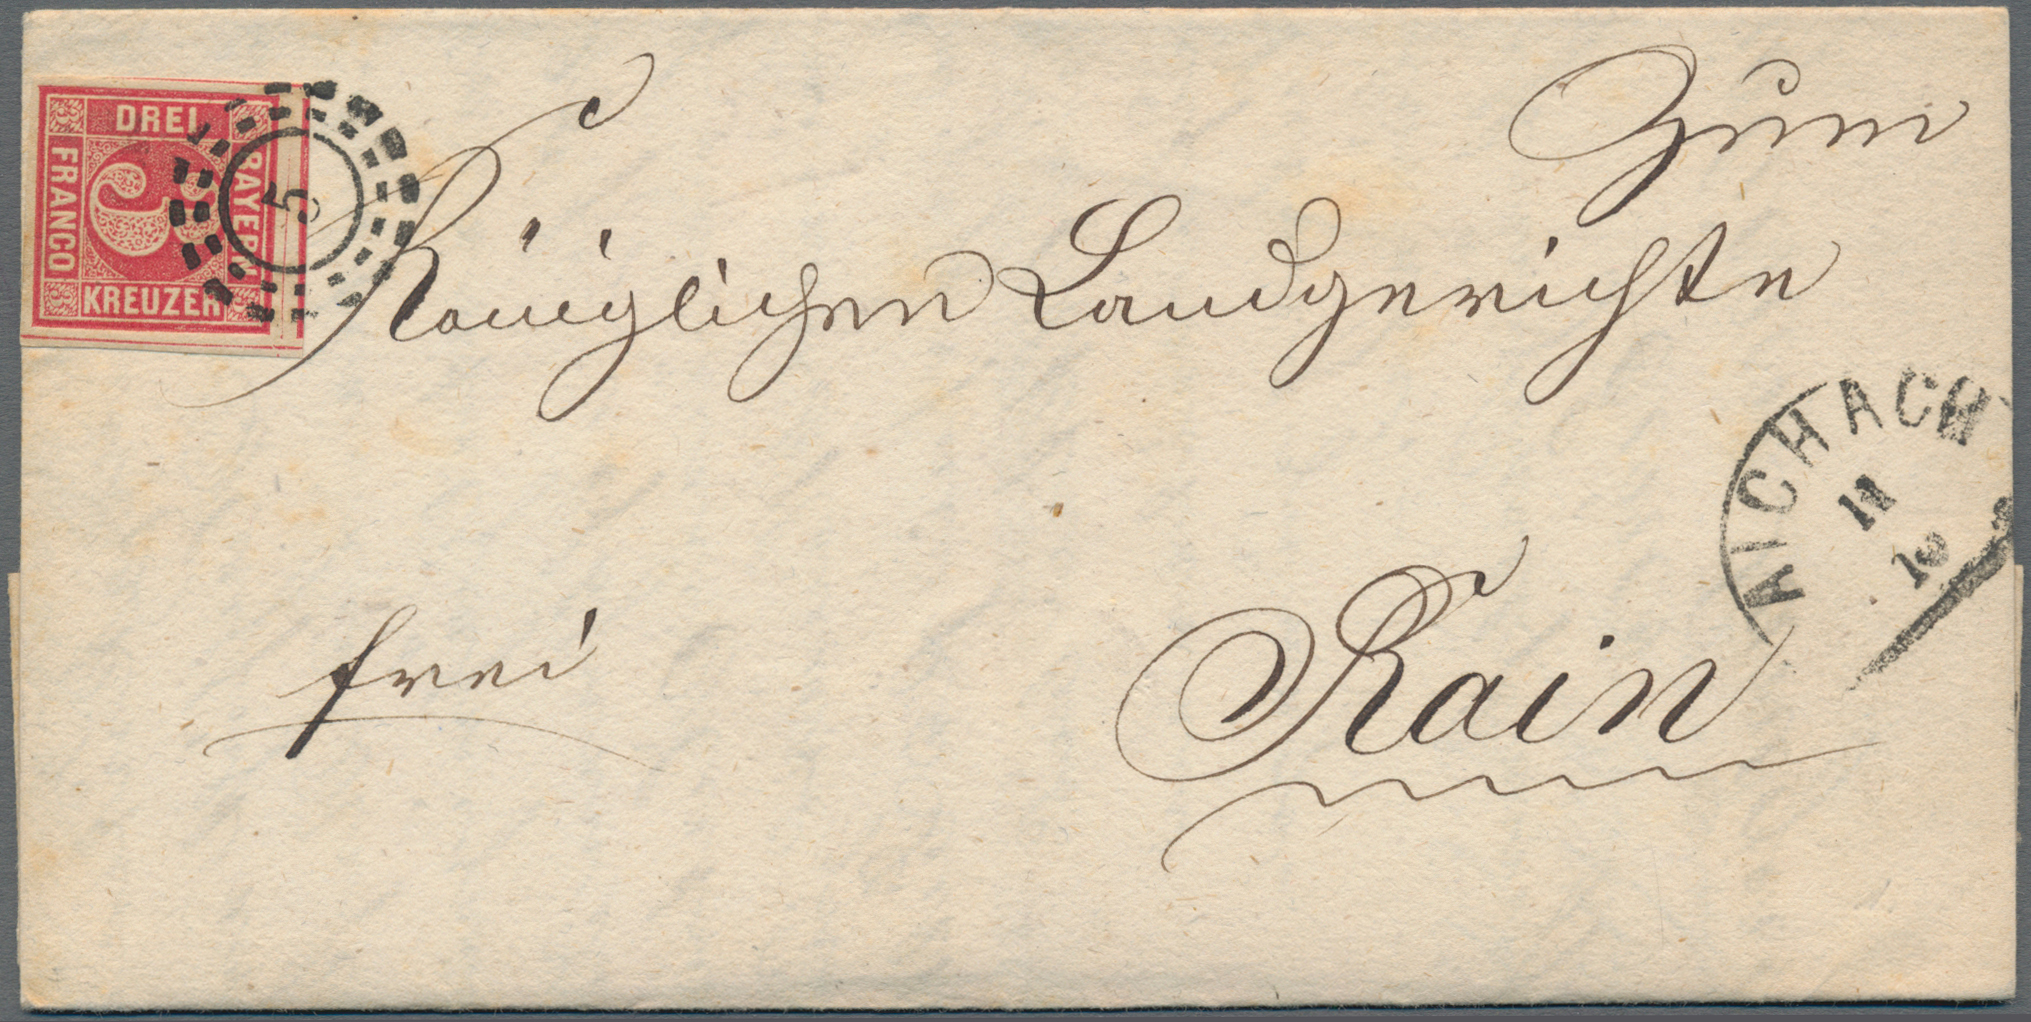 DREI
BAYERN
FRANCO
KREUZER
3
5
Zum
Königlichen Landgerichte
AICHACH
11
10
frei
Rain